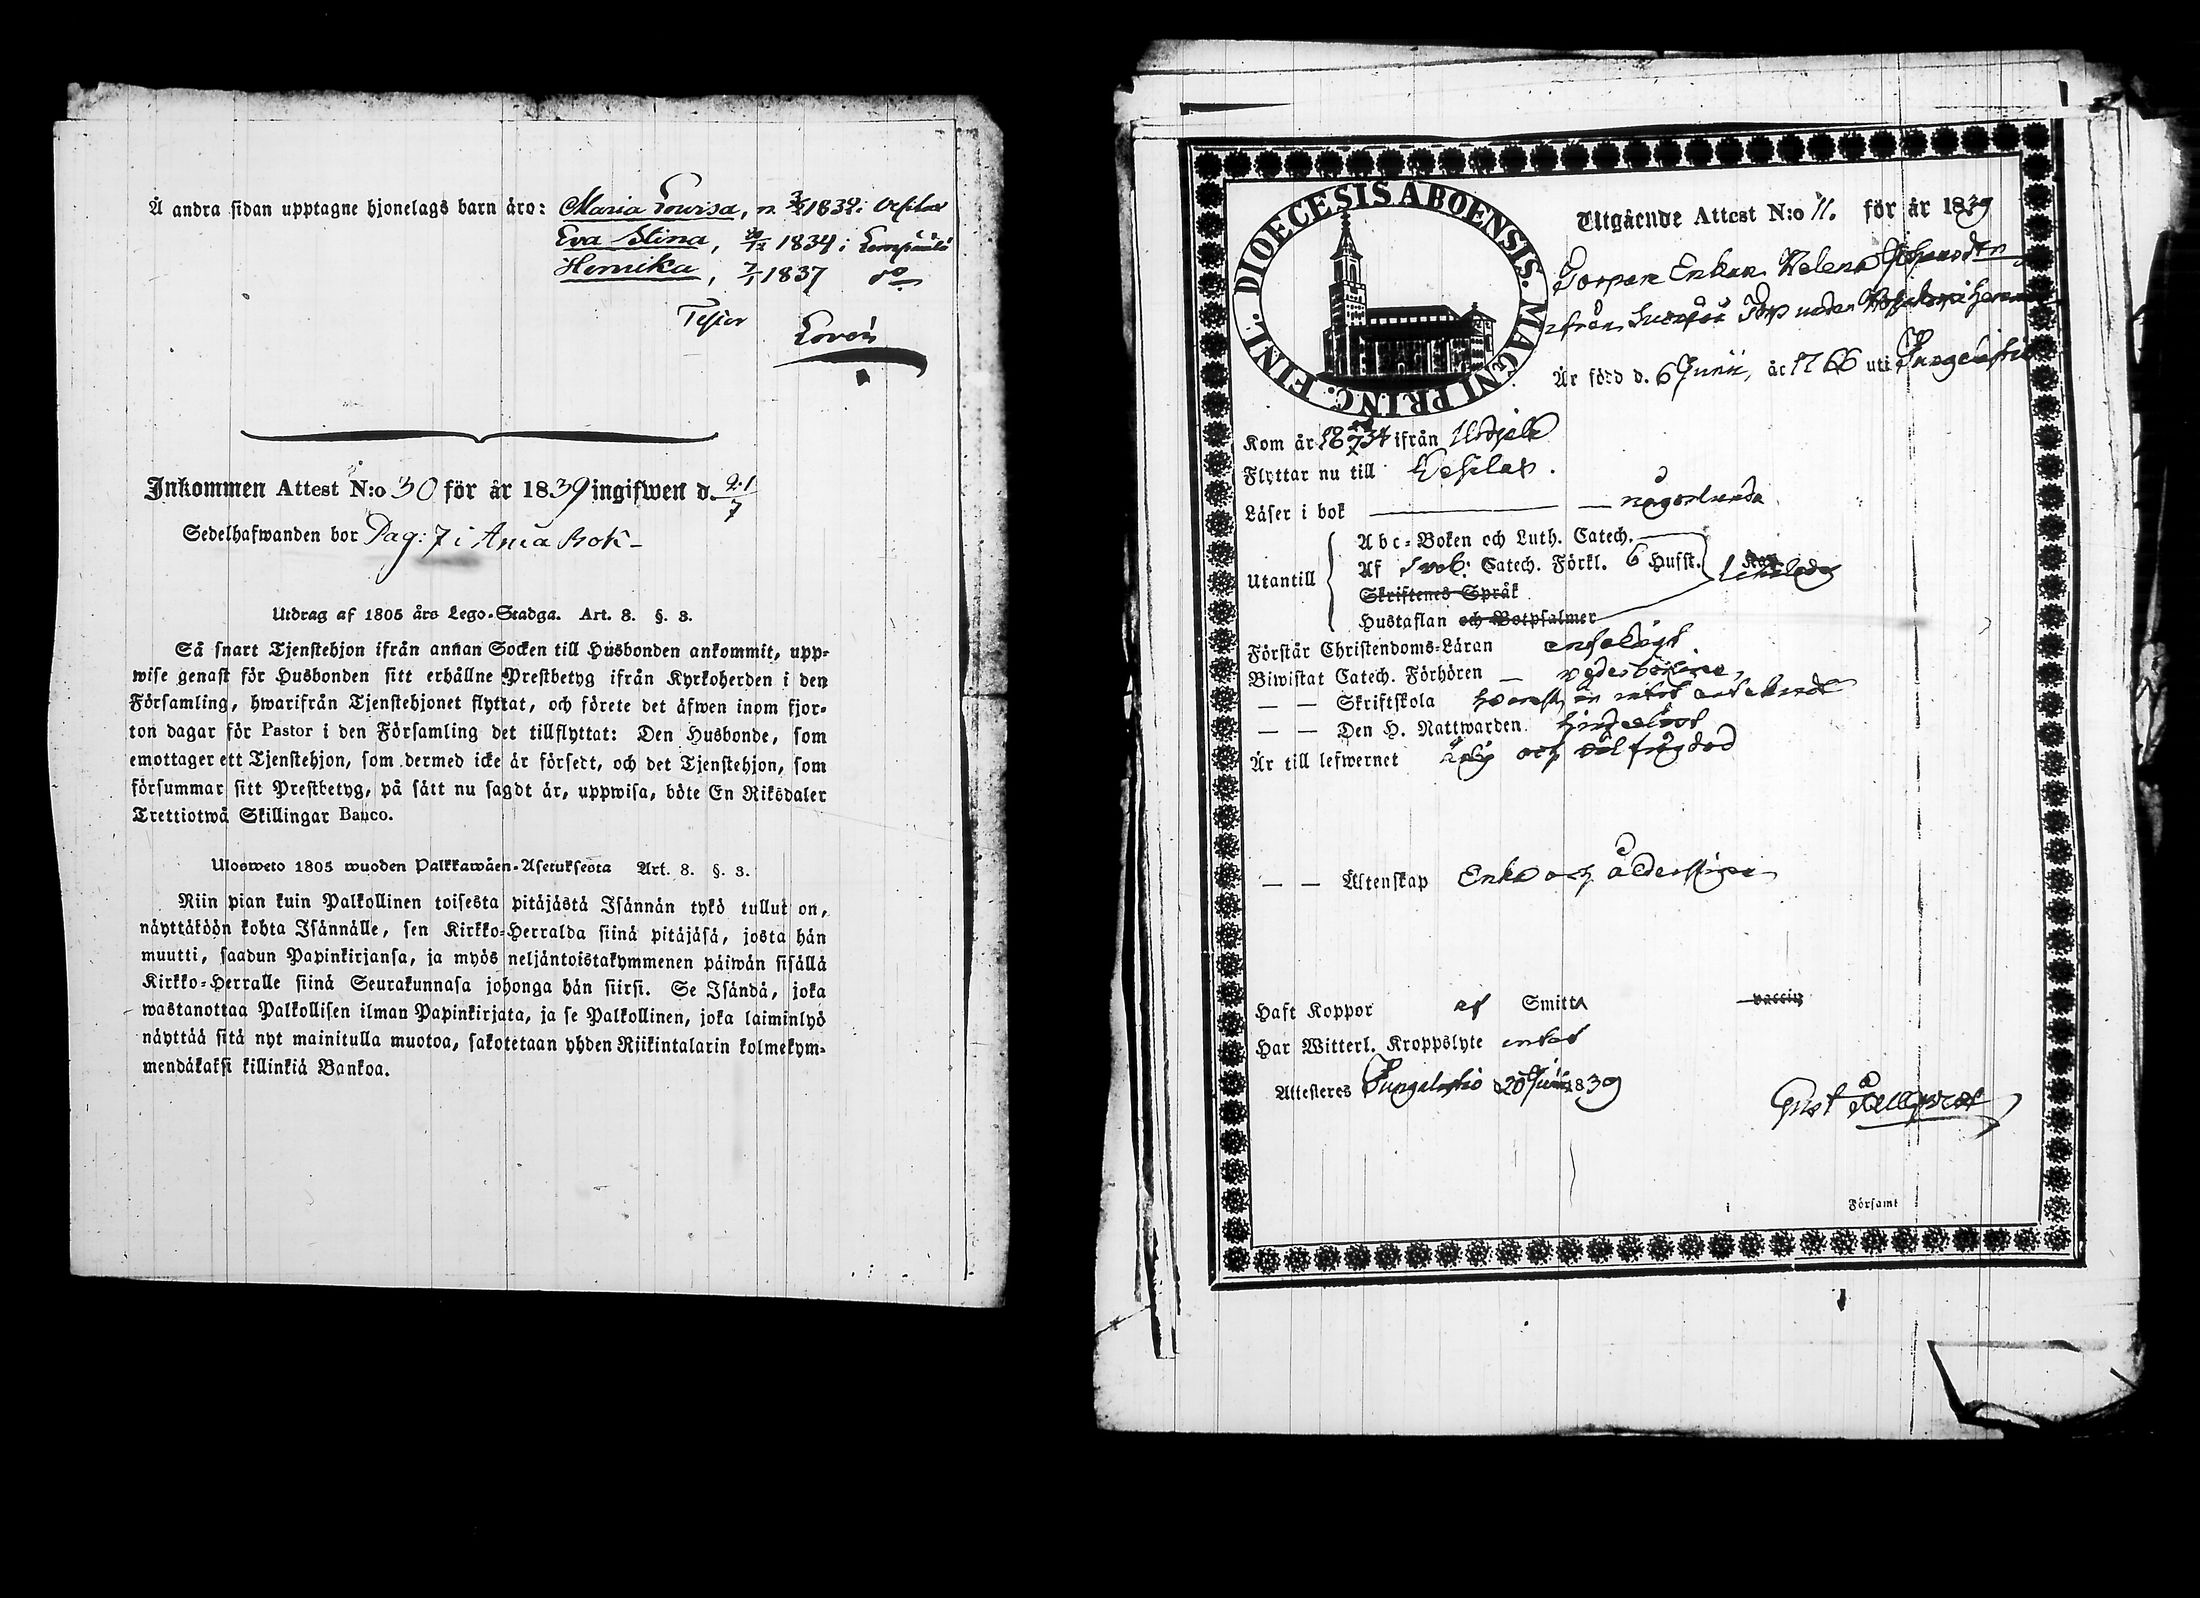 Å andra sidan upptagne hjonelags barn äro: Maria Lowisa, n. 1832 i Vesilax
Eva Stina, 1834 i Lempäälä
Henrika, 7/1 1837 do
Tester
Lovén
Inkommen Attest N:o 30 för år 1839 ingifwen d. 21/7
Sedelhafwanden bor Pag: 7 i Ania Bok
Utdrag af 1805 års Lego-Stadga. Art. 8. §. 3.
Så snart Tjenstehjon ifrån annan Socken till Husbonden ankommit, upp-
wise genast för Husbonden sitt erhållne Prestbetyg ifrån Kyrkoherden i den
Församling, hwarifrån Tjenstehjonet flyttat, och förete det äfwen inom fjor-
ton dagar för Pastor i den Församling det tillflyttat: Den Husbonde, som
emottager ett Tjenstehjon, som dermed icke är försedt, och det Tjenstehjon, som
försummar sitt Prestbetyg, på sätt nu sagdt är, uppwisa, böte En Riksdaler
Trettiotwå Skillingar Banco.
Ulosweto 1805 wuoden Palkkawäen-Asetuksesta Art. 8. §. 3.
Niin pian kuin Palkollinen toisesta pitäjästä Isännän tykö tullut on,
näyttäköön kohta Isännälle, sen Kirkko-Herralda siinä pitäjäsä, josta hän
muutti, saadun Papinkirjansa, ja myös neljäntoistakymmenen päiwän sisällä
Kirkko-Herralle siinä Seurakunnasa johonga hän siirsi. Se Isändä, joka
wastanottaa Palkollisen ilman Papinkirjata, ja se Palkollinen, joka laiminlyö
näyttää sitä nyt mainitulla muotoa, sakotetaan yhden Riikintalarin kolmekym-
mendäkaksi killinkiä Bankoa.
DIOECESIS ABOENSIS. MAGNI PRINC. FINL.
Utgående Attest N:o 11. för år 1839
Torpare Enkan Helena
ifrån Torp under
Är född d. 6 Junii, år 1766 uti Tungelstiö
Kom år 1834 ifrån Urdiala
Flyttar nu till Vesilax.
Läser i bok någorlunda
Utantill
Abc-Boken och Luth. Catech.
Af Sveb. Catech. Förkl. 6 Hufst.
Skriftenes Språk
Hustaflan och Botpsalmer
Förstår Christendoms-Läran enfaldigt
Biwistat Catech. Förhören
— — Skriftskola
— — Den H. Nattwarden
Är till lefwernet och välfrägdad
— — Äktenskap Enka och ålderstigen
Haft Koppor af Smitta vaccin
Har Witterl. Kroppslyte intet
Attesteres Tungelstiö d. 20 1839
Gust
i Församl